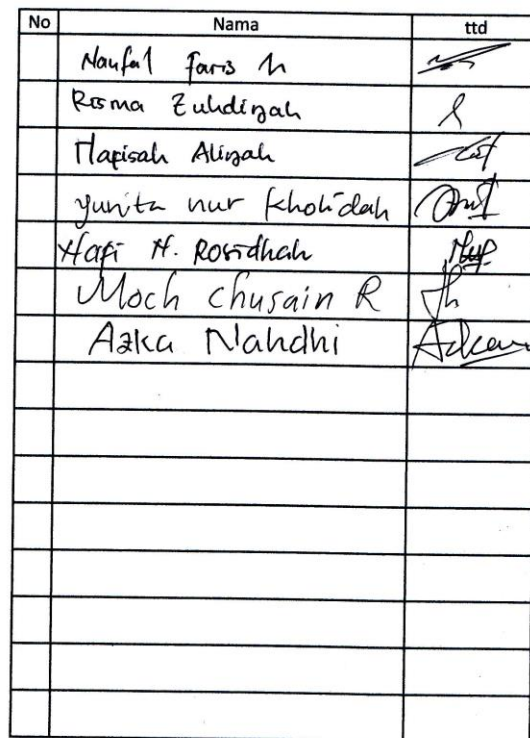 No Nama ttd
Naufal Faris h
Risma Zuhdiyah
Hafisah Aliyah
Yunita nur kholidah
Hafi N. Rosidhah
Moch Chusain R
Azka Nahdhi